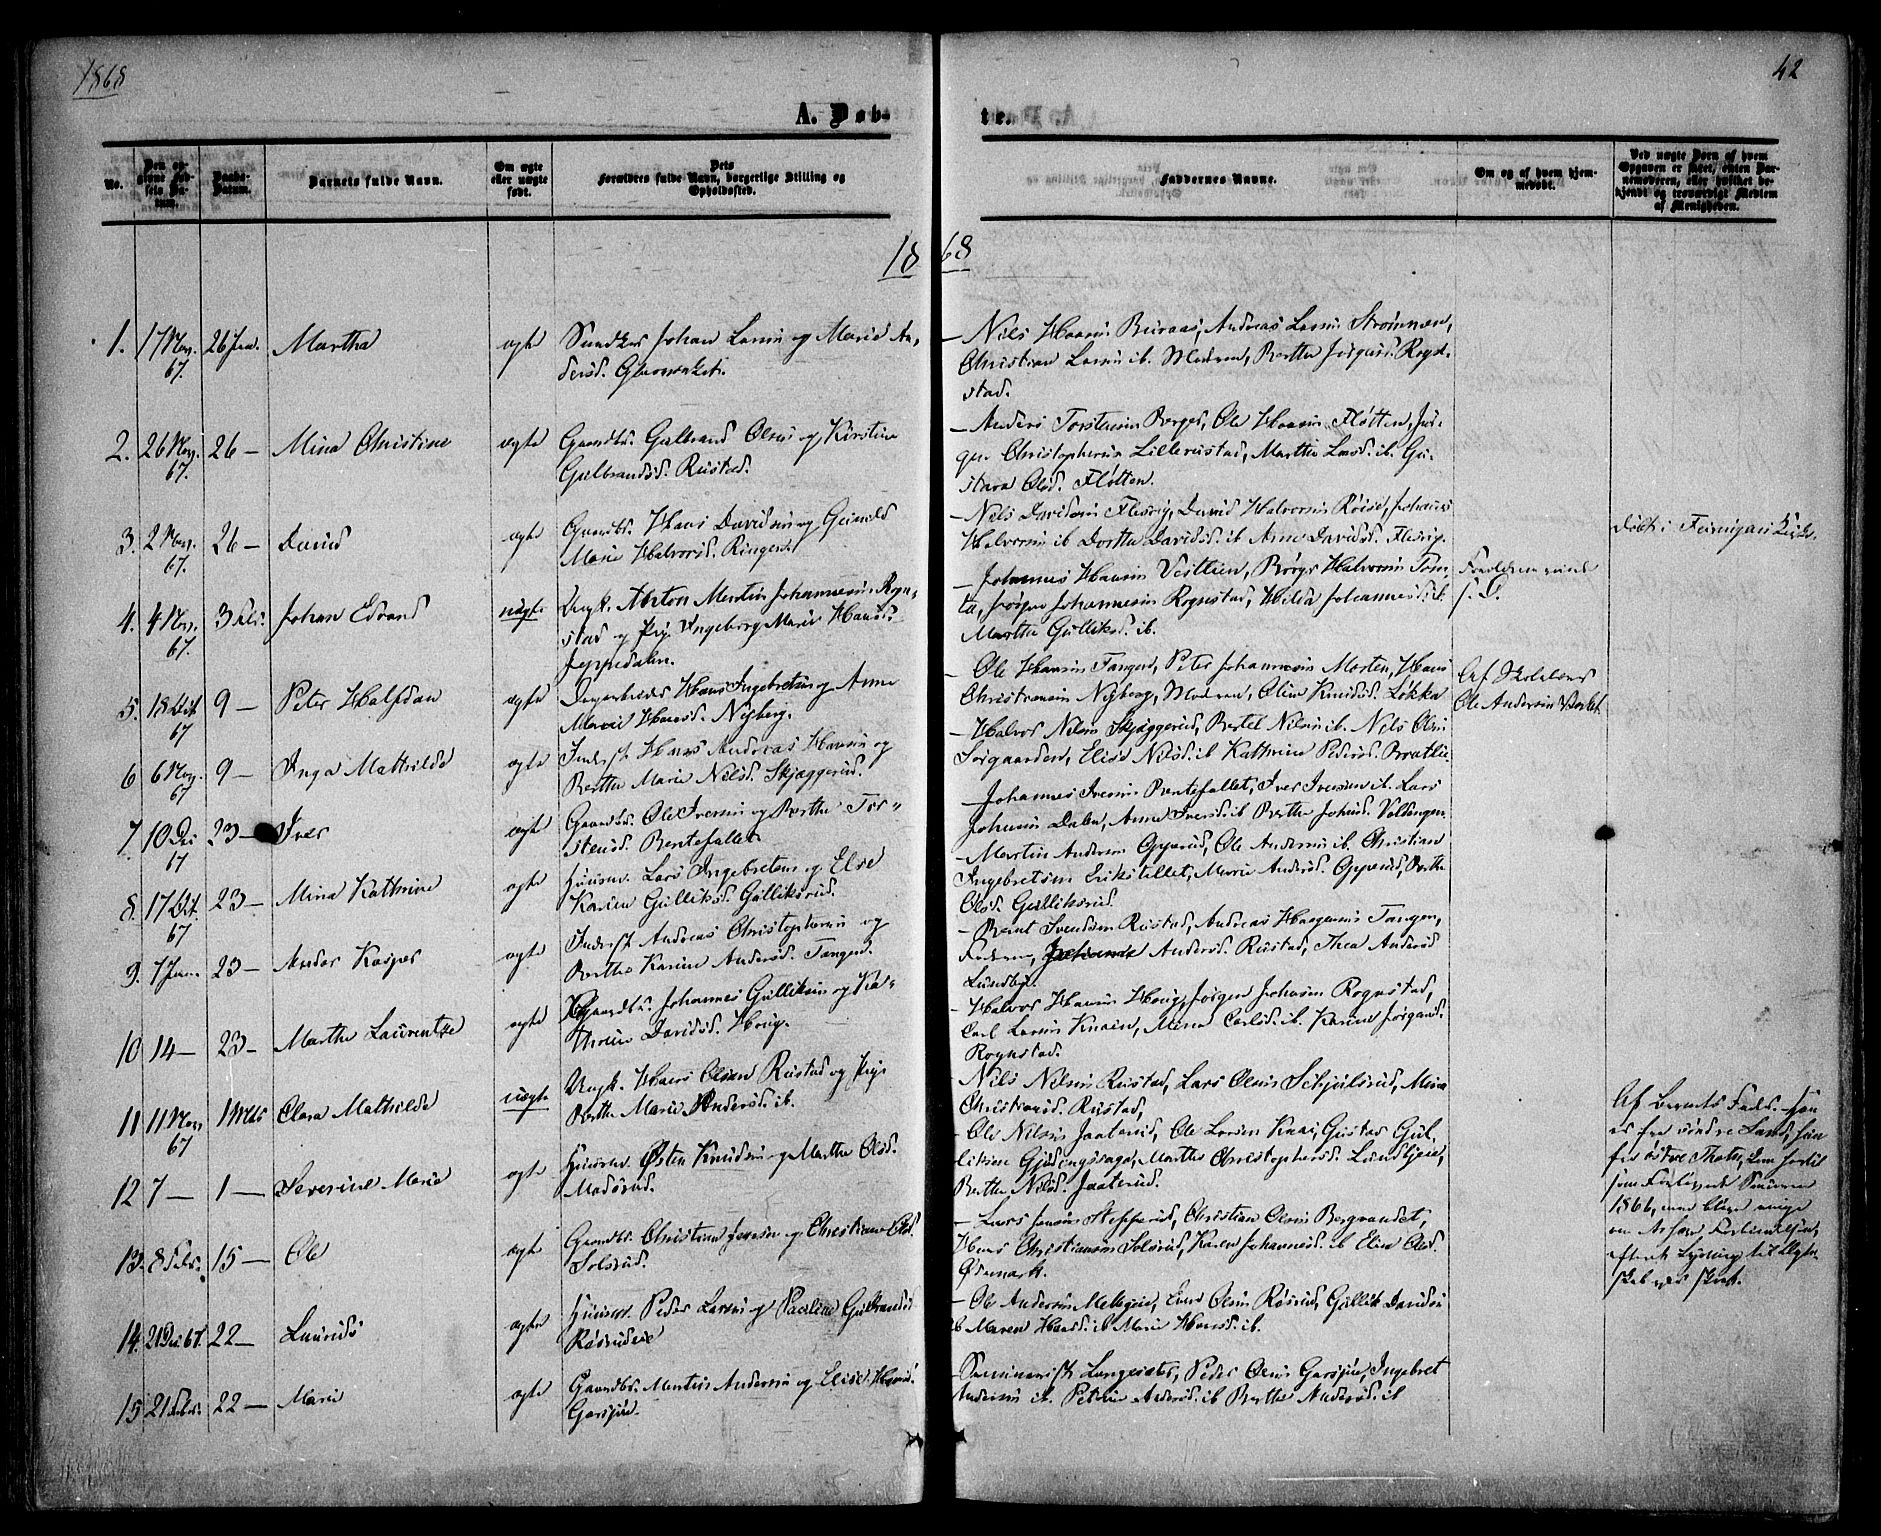 1868
42
A. Døb-
te.
No.
Den op-
givne Fød-
sels Da-
tum.
Daabs-
Datum.
Barnets fulde Navn.
Om ægte
eller uægte
født.
Dets
Forældres fulde Navn, borgerlige Stilling og
Opholdssted.
Faddernes Navne.
Om og af hvem hjem-
medøbt.
Ved uægte Børn af hvem
Opgaven er skeet, enten Bar-
nemoderen, eller hvilket be-
kjendt og troværdigt Medlem
af Menigheden.
18 68
1. 17 Nov. 67. 26 Jan. Martha ægte Johan Larsen og Marie An-
dersd.
Nils Hansen Buraas, Andreas Larsen Strømmen,
Christian Larsen ib. Moderen, Berthe Jørgensd. Rogn-
stad.
2. 26 Nov. 67. 26 — Mina Christine ægte Gaardbr. Gulbrand Olsen og Kirstine
Gulbrandsd. Rustad.
Anders Torstensen Berget, Ole Hansen Fløtten, Jør-
gen Christophersen Lillerustad, Marthe Larsd. ib. Gu-
stava Olsd. Fløtten.
3. 2 Nov. 67. 26 — David ægte Gaardbr. Hans Davidsen og Gunild
Marie Halvorsd. Ringen.
Nils Davidsen Flesvig, David Halvorsen Røisd, Johannes
Halvorsen ib Dorthe Davidsd. ib Anne Davidsd. Flesvig.
Døbt i Feiringens Kirke.
4. 4 Nov. 67. 3 Febr. Johan Edvard uægte Ungk. Anton Martin Johannesen Rogn-
stad og Pig. Ingeborg Marie Hansd.
Jeppedalen.
Johannes Hansen Vestlien, Børge Halvorsen Tom-
ta, Jørgen Johannesen Rognstad, Hilda Johannesd. ib.
Marthe Gulliksd. ib.
Forældrene
s. D.
5. 18 Oct. 67 9 — Peter Halfdan ægte Hans Ingebretsen og Anne
Marie Hansd. Nyberg.
Ole Hansen Tangen, Peter Johannesen Morten, Hans
Christiansen Nyberg, Moderen, Oline Knudsd. Løkka
Af Skolelærer
Ole Andersen
6 6 Nov. 67 9 — Inga Mathilde ægte Inderst Hans Andreas Hansen og
Berthe Marie Nilsd. Skjæggerud.
Halvor Nilsen Skjæggerud, Bertel Nilsen ib. Nils Olsen
Sørgaarden, Elise Nilsd. ib Kathrine Pedersd. Braatlie.
7 10 Dec 67 23 — Iver ægte Gaardbr. Ole Iversen og Berthe Tor-
stensd. Bentefallet.
Johannes Iversen Bentefallet, Iver Iversen ib. Lars
Johnsen Dalen, Anne Iversd. ib Berthe Johnsd. Voldengen
8. 17 Oct. 67 23 — Mina Kathrine ægte Huusm. Lars Ingebretsen og Else
Karine Gulliksd. Gulliksrud.
Martin Andersen Opperud, Ole Andersen ib. Christian
Ingebretsen Erikstellet, Marie Andersd. Opperud, Berthe
Olsd. Gulliksrud
9. 7 Jan. 23 — Anders Kasper ægte Inderst Andreas Christophersen og
Berthe Karine Andersd. Tangen.
Bernt Svendsen Rustad, Andreas Haagensen Tangen,
Faderen, Andersd. Rustad, Thea Andersd
Lundby.
10 14 — 23 — Marthe Laurentze ægte Gaardbr. Johannes Gulliksen og Ka-
thrine Davidsd. Houg.
Halvor Hansen Houg, Jørgen Johnsen Rognstad,
Carl Larsen Knaien, Mina Carlsd. ib. Karine Jørgensd.
Rognstad.
11 11 Nov 67 1 Marts Clara Mathilde uægte Ungk. Hans Olsen Rustad og Pige
Berthe Marie Andersd. ib.
Nils Nilsen Rustad, Lars Olsen Schjulsrud, Mina
Christensd. Rustad,
Af Barnets Fader. Han
er fra søndre Land, hun
fra østre Thoten,
1866,
12 7 — 1 — Severine Marie ægte Huusm. Østen Knudsen og Marthe Olsd.
Madsrud.
Ole Nilsen Jaaterud, Ole Larsen Knai, Gustav Gul-
liksen Gjødingssaga, Marthe Christophersd. Lundbyeie,
Berthe Nilsd. Jaaterud.
13. 8 Febr. 15 — Ole ægte Gaardbr. Christian Jensen og Christiane Olsd.
Solsrud.
Lars Jensen Stepperud, Christian Olsen Bergvandet,
Hans Christiansen Solsrud, Karen Johannesd. ib Eline Olsd.
Ødemark.
14. 21 Dec. 67. 22 — Laurids ægte Huusm. Peder Larsen og Pauline Gulbrandsd
Røsrudeie
Ole Andersen Melbyeie, Even Olsen Røsrud, Gullik Davidsen
ib Maren Hansd. ib Marie Hansd. ib.
15 21 Febr. 22 — Marie ægte Gaardbr. Mentis Andersen og Elise Hansd.
Garsjøe.
Seminarist Langsæter, Peder Olsen Garsjøe, Ingebret
Andersen ib. Petrine Andersd. ib Berthe Andersd. ib